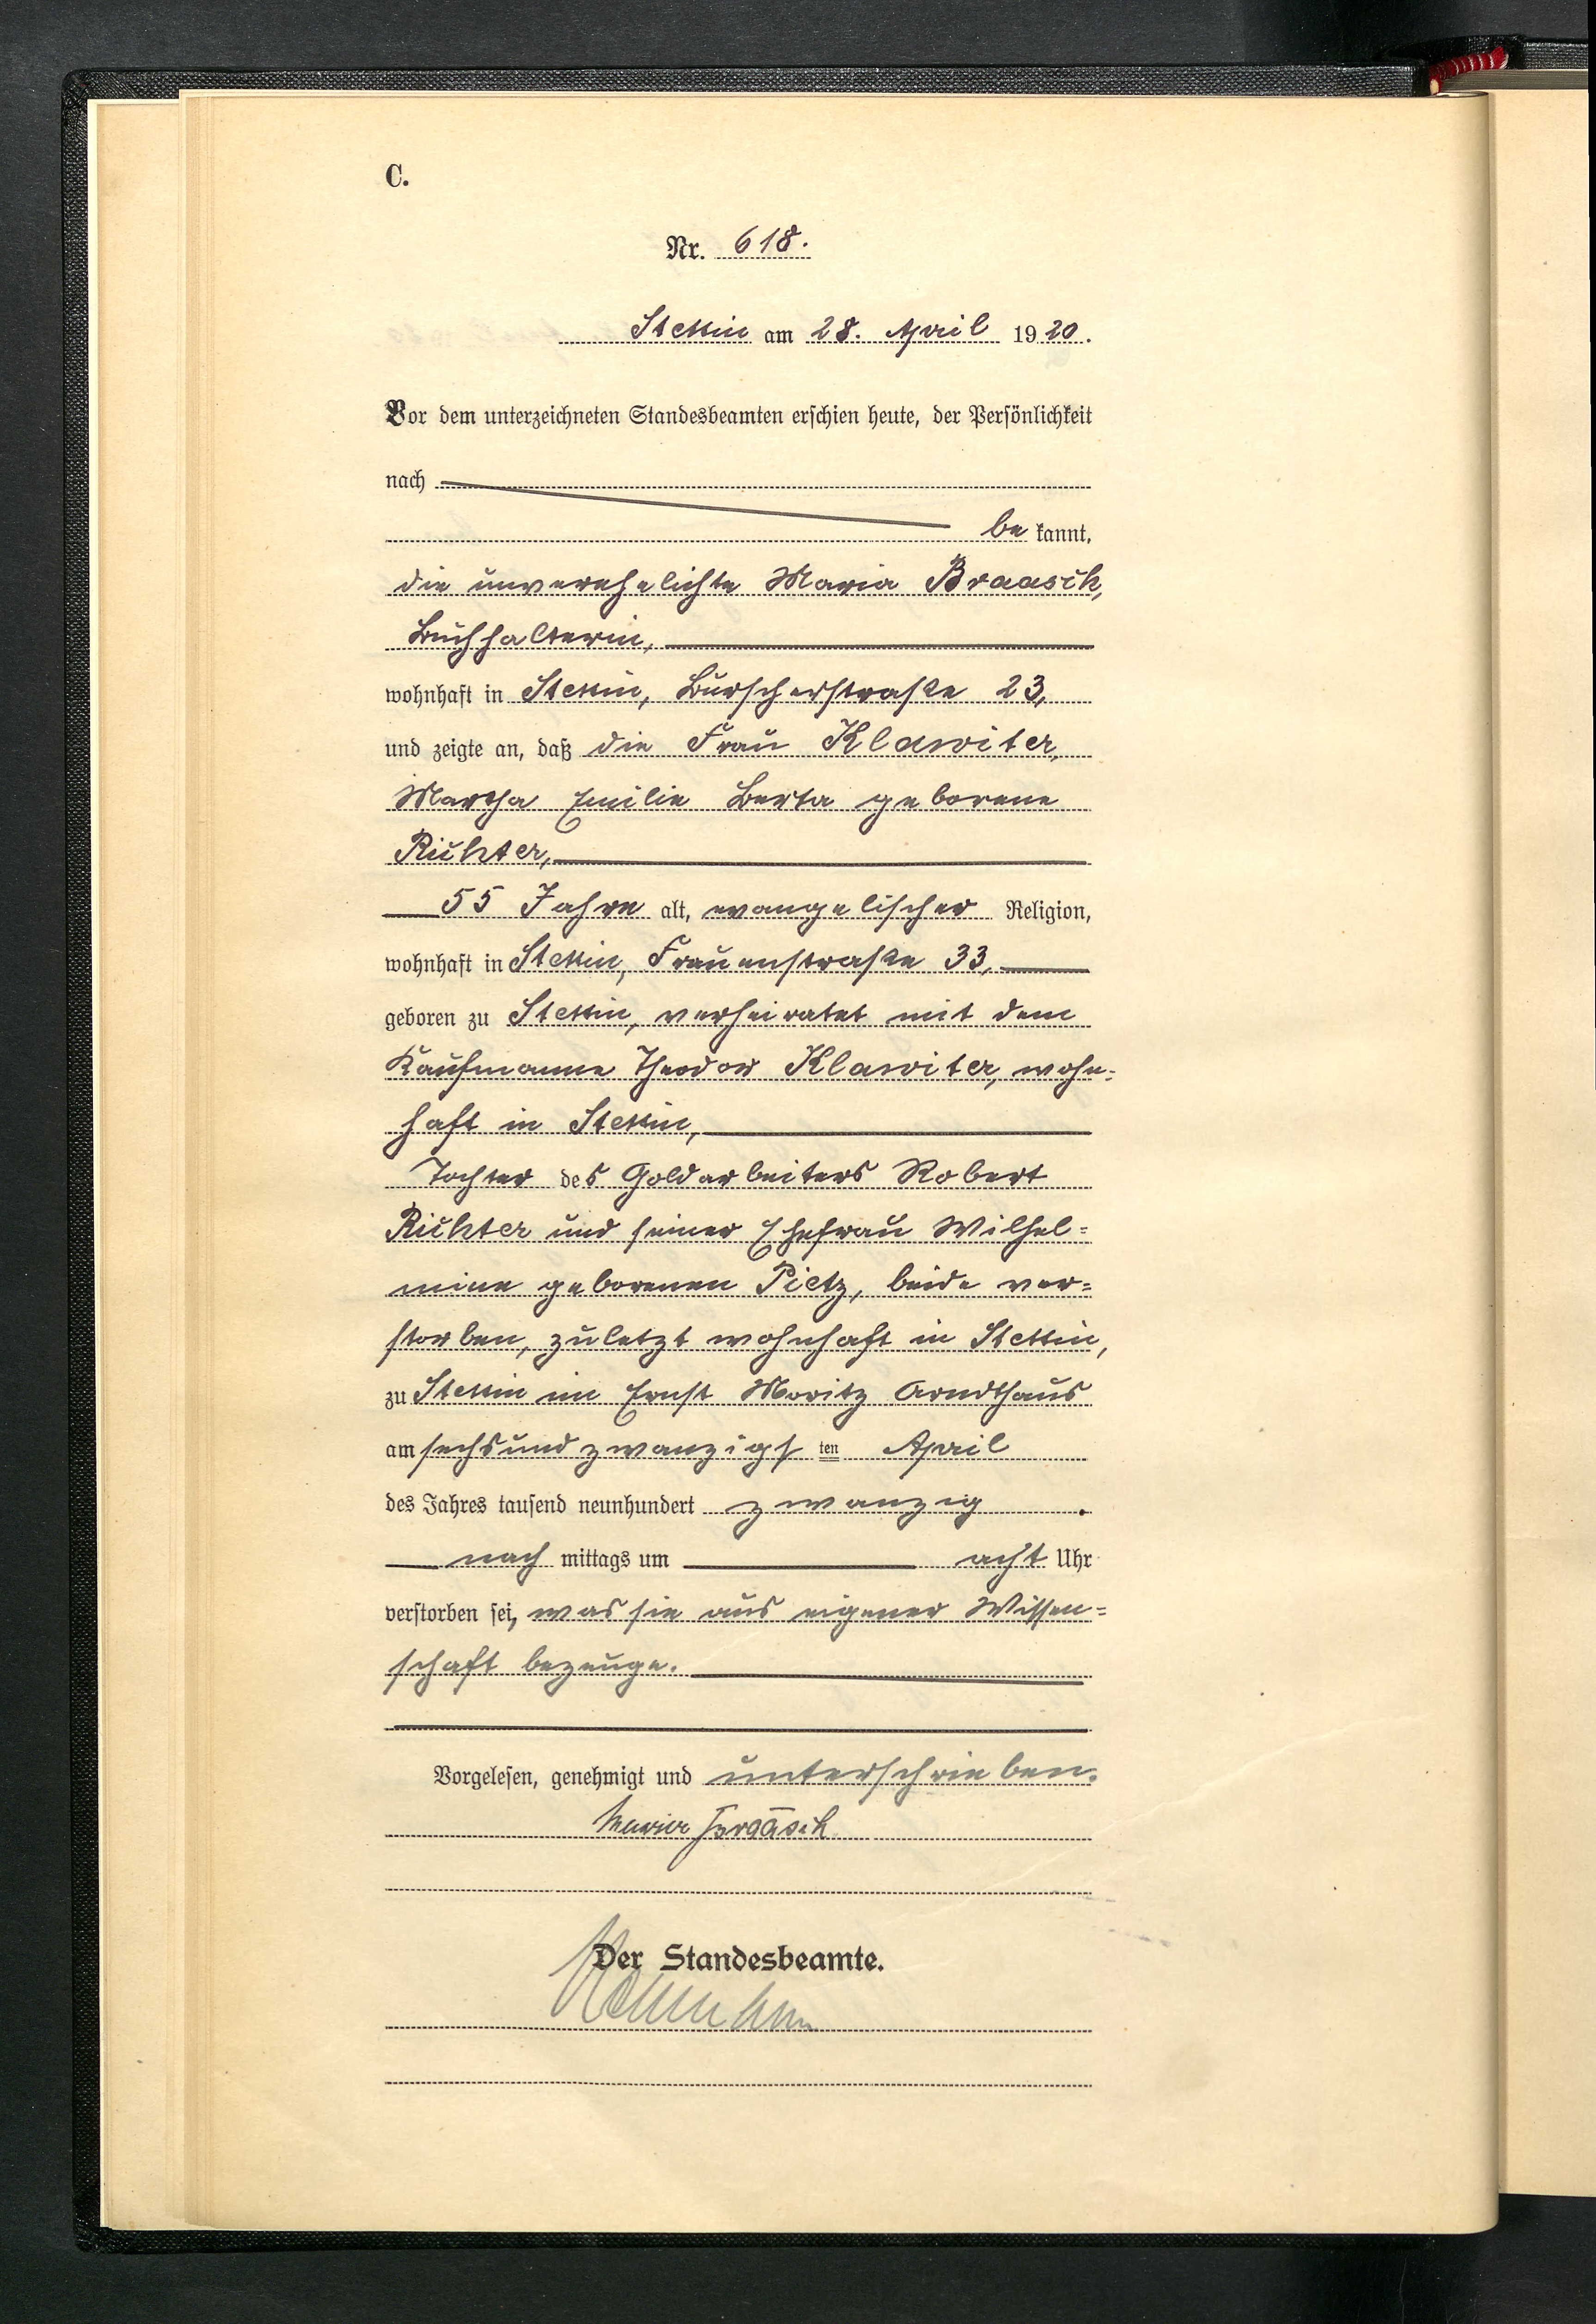 C.
Nr. 618.
Stettin am 28. April 1920.
Vor dem unterzeichneten Standesbeamten erschien heute, der Persönlichkeit
nach
be kannt,
die unverehelichte Maria Braasch,
Buchhalterin,
wohnhaft in Stettin, Burscherstraße 23,
und zeigte an, daß die Frau Klawiter,
Martha Emilie Berta geborene
Richter,
55 Jahre alt, evangelischer Religion,
wohnhaft in Stettin, Frauenstraße 33,
geboren zu Stettin, verheiratet mit dem
Kaufmanne Theodor Klawiter, wohn=
haft in Stettin,
Tochter des Goldarbeiters Robert
Richter und seiner Ehefrau Wilhel=
mine geborenen Pietz, beide ver=
storben, zuletzt wohnhaft in Stettin,
zu Stettin im Ernst Moritz Arndthaus
am sechsundzwanzigsten April
des Jahres tausend neunhundert zwanzig.
nach mittags um acht Uhr
verstorben sei, was sie aus eigener Wissen=
schaft bezeuge.
Vorgelesen, genehmigt und unterschrieben.
Maria Braasch
Der Standesbeamte.